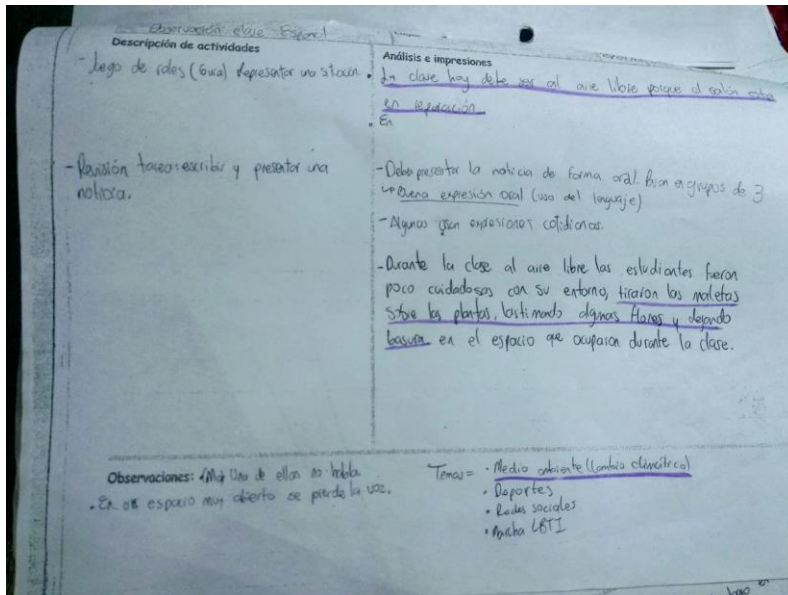 Observación clase Español
Descripción de actividades
- Juego de roles (Guía) Representar una situación.
- Revisión tarea: escribir y presentar una
noticia.
Análisis e impresiones
• La clase hoy debe ser al aire libre porque el salón esta
en reparación
• En
- Debe presentar la noticia de forma oral. en grupos de 3
Buena expresión oral (uso del lenguaje)
- Algunas usan expresiones cotidianas.
- Durante la clase al aire libre las estudiantes fueron
poco cuidadosas con su entorno, tiraron las maletas
sobre las plantas, lastimando algunas flores y dejando
basura en el espacio que ocuparon durante la clase.
Observaciones: Una de ellas no habla
• En un espacio muy abierto se pierde la voz.
Temas = • Medio ambiente (Cambio climático)
• Deportes
• Redes sociales
• Marcha LBTI